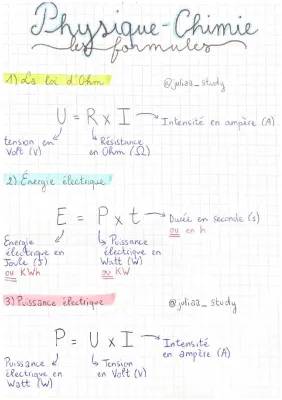 Physique-Chimie
les formules
1) La loi d'Ohm
@juliaa_study
U = R x I → Intensité en ampère (A)
tension en Volt (V)
Résistance en Ohm (Ω)
2) Énergie électrique
E = P x t → Durée en seconde (s)
ou en h
Energie électrique en Joule (J)
ou KWh
Puissance électrique en Watt (W)
ou KW
3) Puissance électrique
@juliaa_study
P = U x I → Intensité en ampère (A)
Puissance électrique en Watt (W)
Tension en Volt (V)